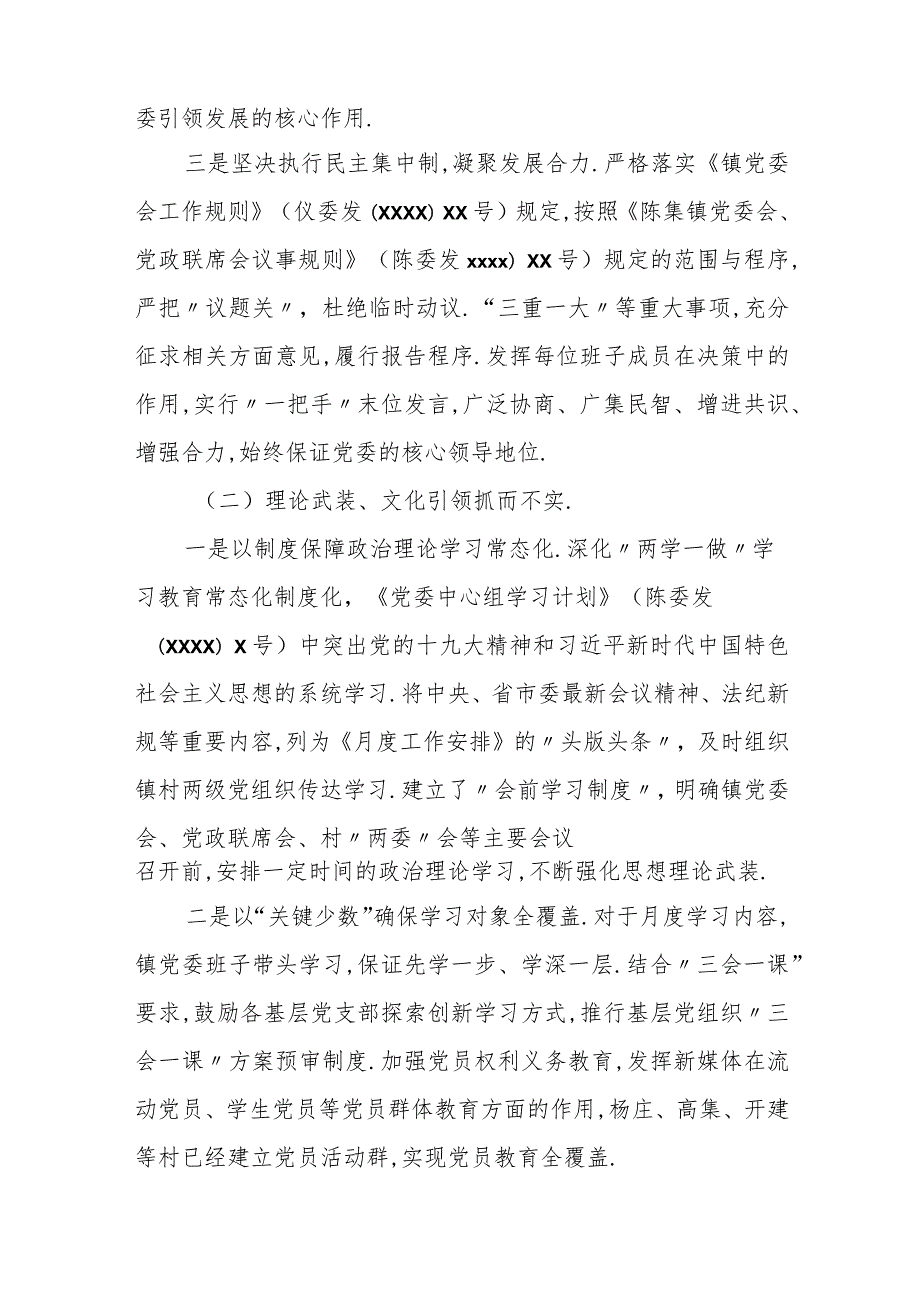 委引领发展的核心作用.
三是坚决执行民主集中制,凝聚发展合力.严格落实《镇党委
会工作规则》（仪委发 (XXXX) XX 号）规定,按照《陈集镇党委会、
党政联席会议事规则》（陈委发 xxxx) XX 号）规定的范围与程序,
严把〃议题关〃，杜绝临时动议.“三重一大〃等重大事项,充分
征求相关方面意见,履行报告程序.发挥每位班子成员在决策中的
作用,实行〃一把手〃末位发言,广泛协商、广集民智、增进共识、
增强合力,始终保证党委的核心领导地位.
（二）理论武装、文化引领抓而不实.
一是以制度保障政治理论学习常态化.深化〃两学一做〃学
习教育常态化制度化，《党委中心组学习计划》（陈委发
(XXXX) X 号）中突出党的十九大精神和习近平新时代中国特色
社会主义思想的系统学习.将中央、省市委最新会议精神、法纪新
规等重要内容,列为《月度工作安排》的〃头版头条〃，及时组织
镇村两级党组织传达学习.建立了〃会前学习制度〃，明确镇党委
会、党政联席会、村〃两委〃会等主要会议
召开前,安排一定时间的政治理论学习,不断强化思想理论武装.
二是以“关键少数”确保学习对象全覆盖.对于月度学习内容,
镇党委班子带头学习,保证先学一步、学深一层.结合〃三会一课”
要求,鼓励各基层党支部探索创新学习方式,推行基层党组织〃三
会一课〃方案预审制度.加强党员权利义务教育,发挥新媒体在流
动党员、学生党员等党员群体教育方面的作用,杨庄、高集、开建
等村已经建立党员活动群,实现党员教育全覆盖.